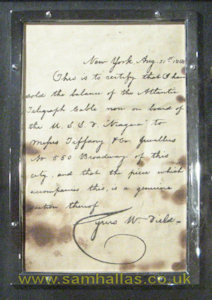 New York Aug. 21st 1858
This is to certify that I have
sold the balance of the Atlantic
Telegraph Cable now on board of
the U.S.S.F. Niagara to
Messrs Tiffany & Co Jewellers
No 550 Broadway of this
city, and that the piece which
accompanies this, is a genuine
section thereof.
Cyrus W. Field.
www.samhallas.co.uk